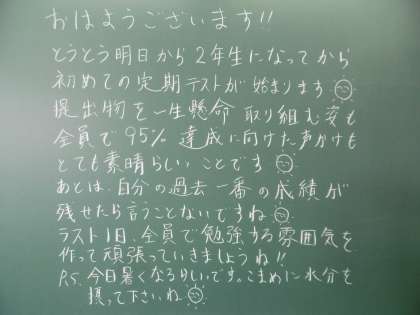 おはようございます!!
とうとう明日から2年生になってから
初めての定期テストが始まります
提出物を一生懸命取り組む姿も
全員で95%達成に向けた声かけも
とても素晴らしいことです
あとは、自分の過去一番の成績が
残せたら言うことないですね
ラスト1日、全員で勉強する雰囲気を
作って頑張っていきましょうね!!
P.S. 今日暑くなるらしいです。こまめに水分を
摂って下さいね